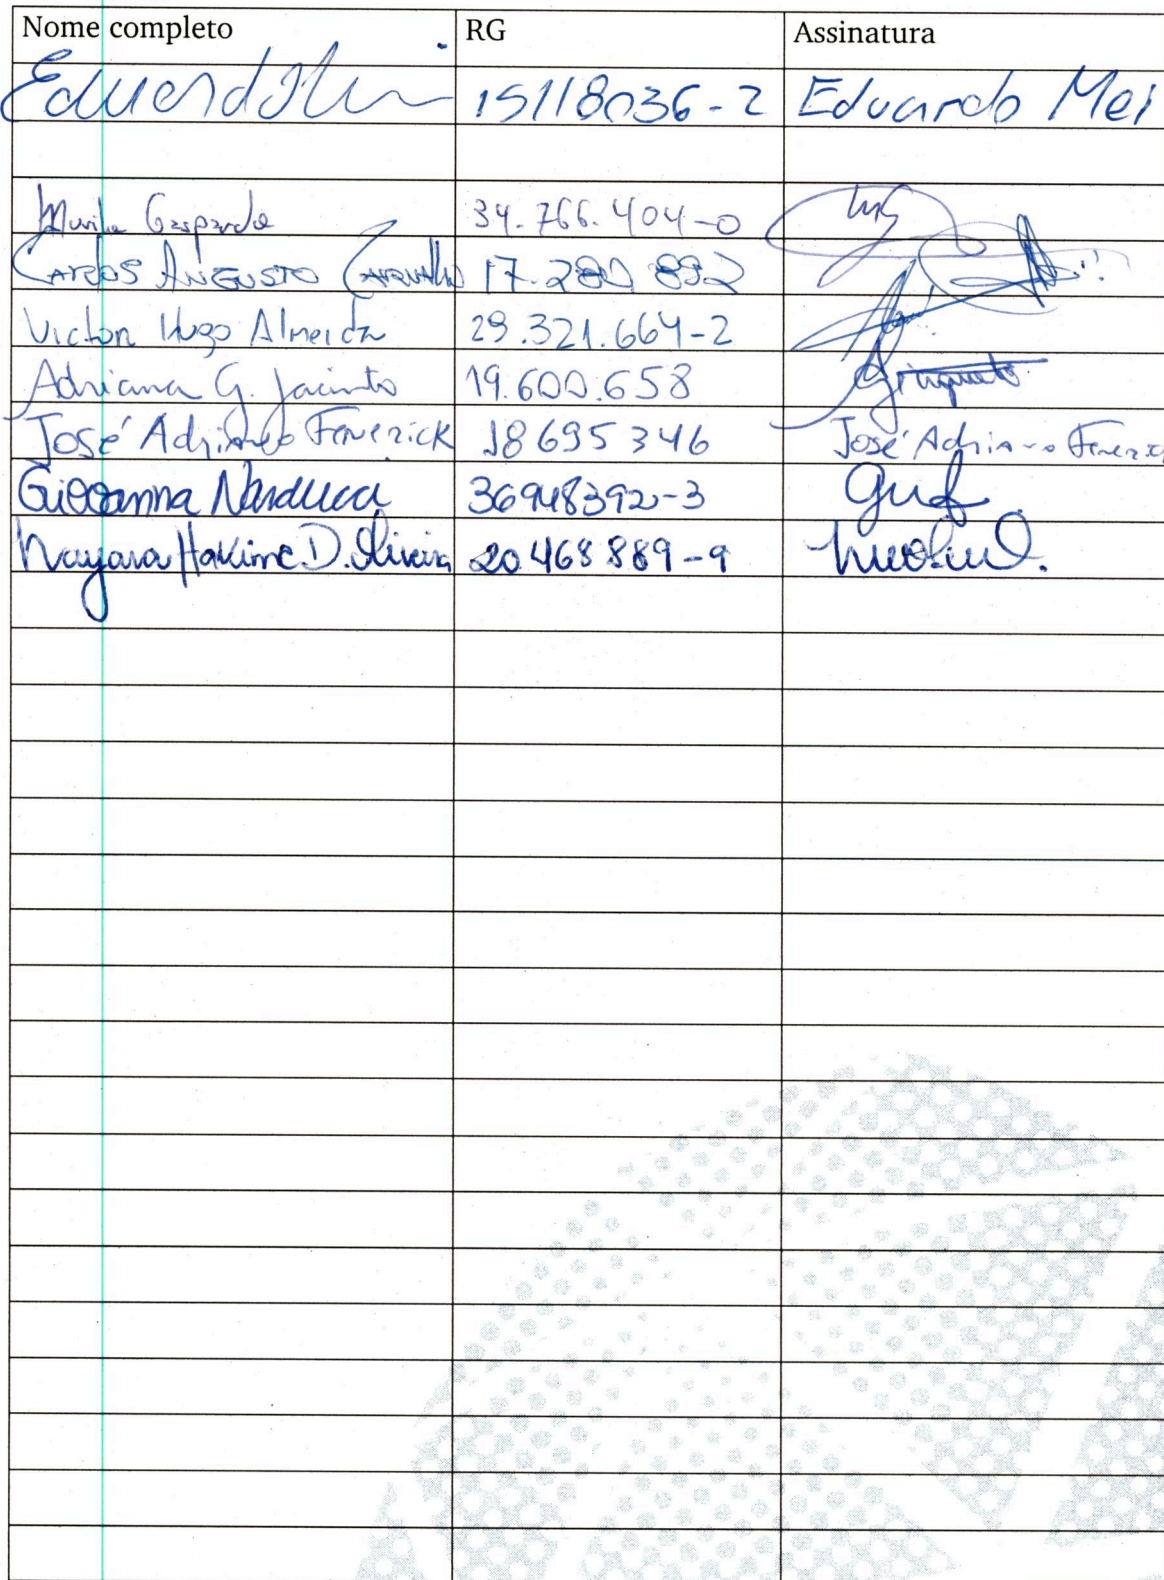 Nome completo RG Assinatura
Eduardo Mei 15118036-2 Eduardo Mei
Murilo Gaspardo 34.766.404-0
CARLOS AUGUSTO CARVALHO 17.280.892
Victor Hugo Almeida 29.321.664-2
Adriana G. Jacinto 19.600.658
José Adriano Fenerick 18695346 José Adriano Fenerick
Giovanna Narducci 36948392-3
Nayara Hakime D. Oliveira 20.468.889-9